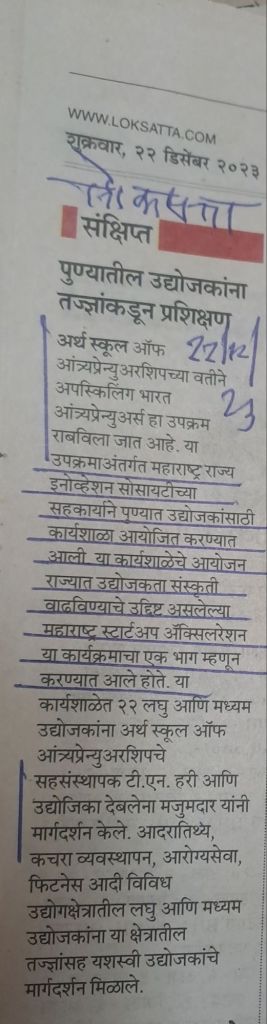 WWW.LOKSATTA.COM
शुक्रवार, २२ डिसेंबर २०२३
लोकसत्ता
संक्षिप्त
पुण्यातील उद्योजकांना
तज्ज्ञांकडून प्रशिक्षण
22/12/
23
अर्थ स्कूल ऑफ
आंत्र्यप्रेन्युअरशिपच्या वतीने
अपस्किलिंग भारत
आंत्र्यप्रेन्युअर्स हा उपक्रम
राबविला जात आहे. या
उपक्रमाअंतर्गत महाराष्ट्र राज्य
इनोव्हेशन सोसायटीच्या
सहकार्याने पुण्यात उद्योजकांसाठी
कार्यशाळा आयोजित करण्यात
आली. या कार्यशाळेचे आयोजन
राज्यात उद्योजकता संस्कृती
वाढविण्याचे उद्दिष्ट असलेल्या
महाराष्ट्र स्टार्टअप ॲक्सिलरेशन
या कार्यक्रमाचा एक भाग म्हणून
करण्यात आले होते. या
कार्यशाळेत २२ लघु आणि मध्यम
उद्योजकांना अर्थ स्कूल ऑफ
आंत्र्यप्रेन्युअरशिपचे
सहसंस्थापक टी.एन. हरी आणि
उद्योजिका देबलेना मजुमदार यांनी
मार्गदर्शन केले. आदरातिथ्य,
कचरा व्यवस्थापन, आरोग्यसेवा,
फिटनेस आदी विविध
उद्योगक्षेत्रातील लघु आणि मध्यम
उद्योजकांना या क्षेत्रातील
तज्ज्ञांसह यशस्वी उद्योजकांचे
मार्गदर्शन मिळाले.